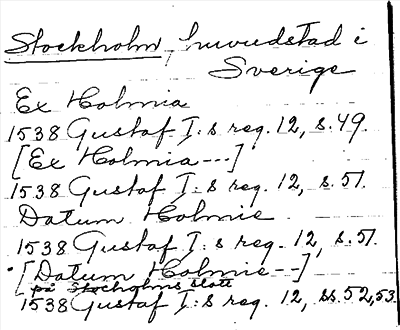 Stockholm, huvudstad i
Sverige
Ex Holmia
1538 Gustaf I:s reg. 12, s. 49.
[Ex Holmia ---]
1538 Gustaf I:s reg. 12, s. 51.
Datum Holmie
1538 Gustaf I:s reg. 12, s. 51.
[Datum Holmie --]
på Stocholms slott
1538 Gustaf I:s reg. 12, ss. 52, 53.